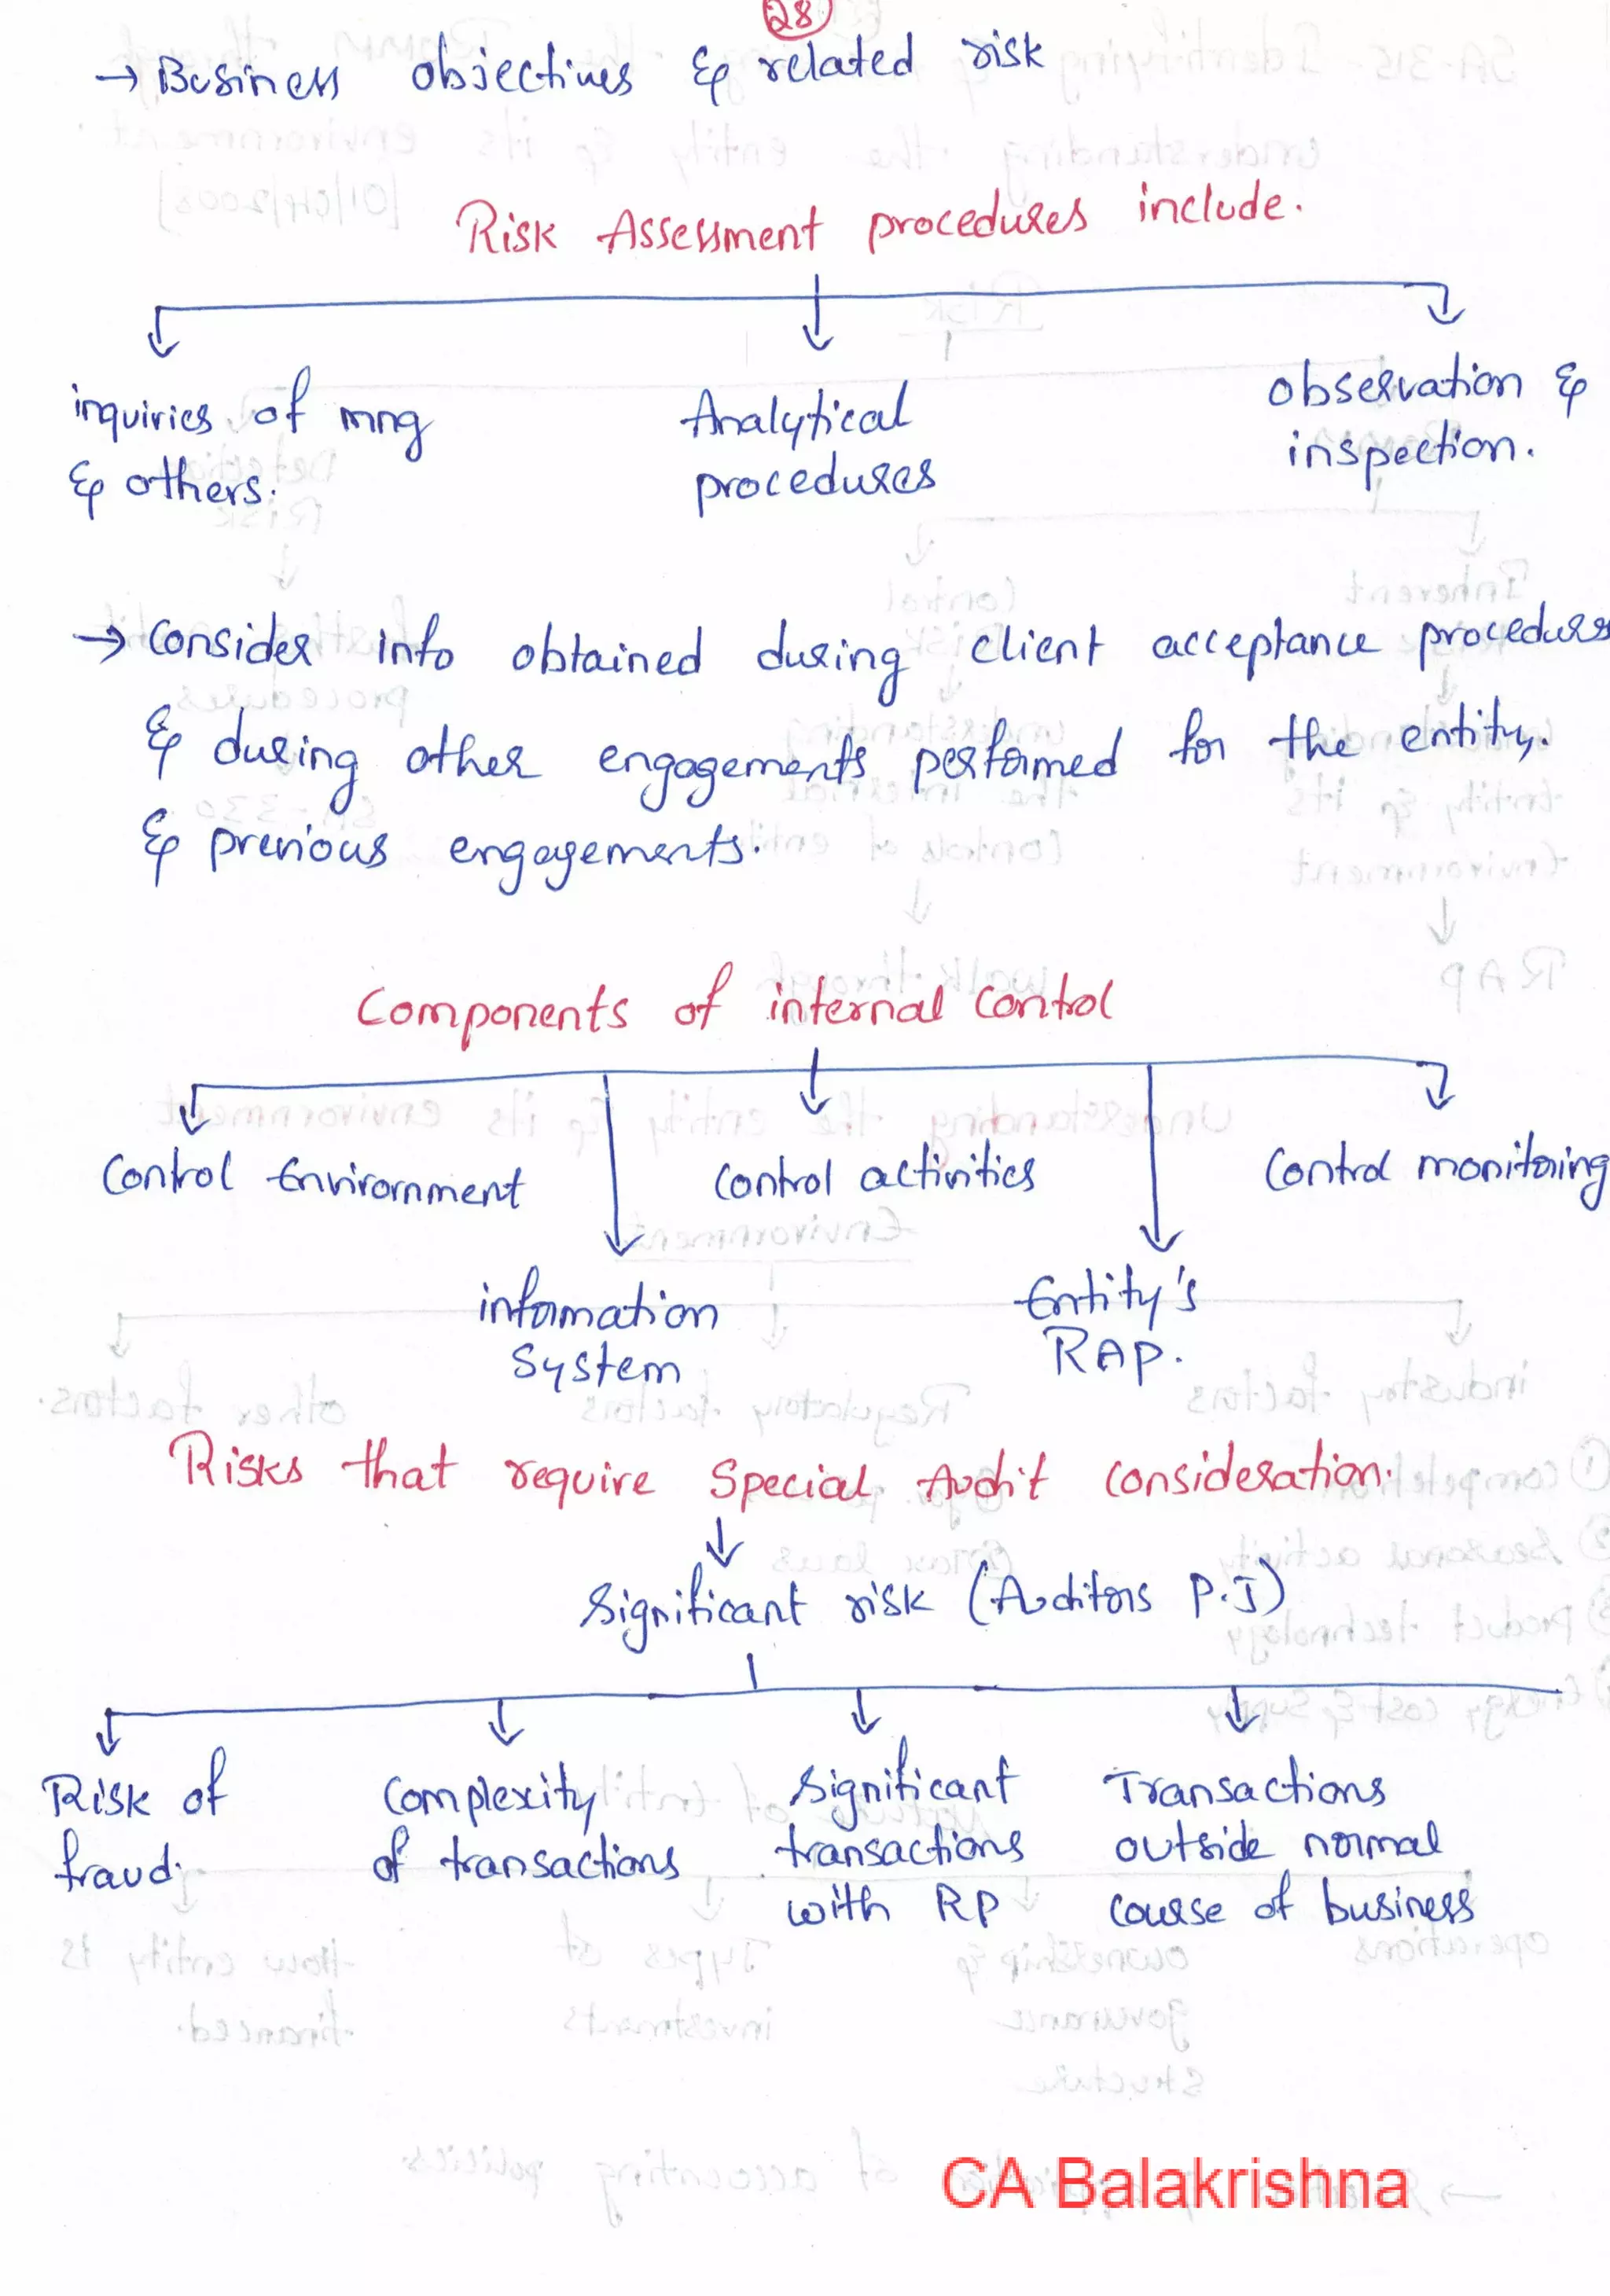 28
→ Business objectives & related risk
Risk Assessment procedures include.
inquiries of mng
& others.
Analytical
procedures
observation &
inspection.
→ Consider info obtained during client acceptance procedures
& during other engagements performed for the entity.
& previous engagements.
Components of internal control
Control Environment
control activities
Control monitoring
information
System
Entity's
RAP.
Risks that require Special Audit consideration.
Significant risk (Auditors P.J)
Risk of
fraud.
Complexity
of transactions
Significant
transactions
with RP
Transactions
outside normal
course of business
CA Balakrishna